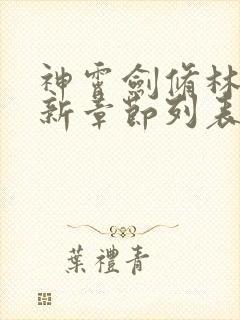 神霄劍脩林
新章節列表
葉禮青